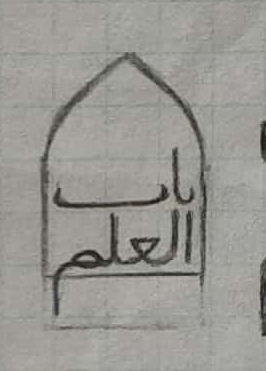 باب
العلم